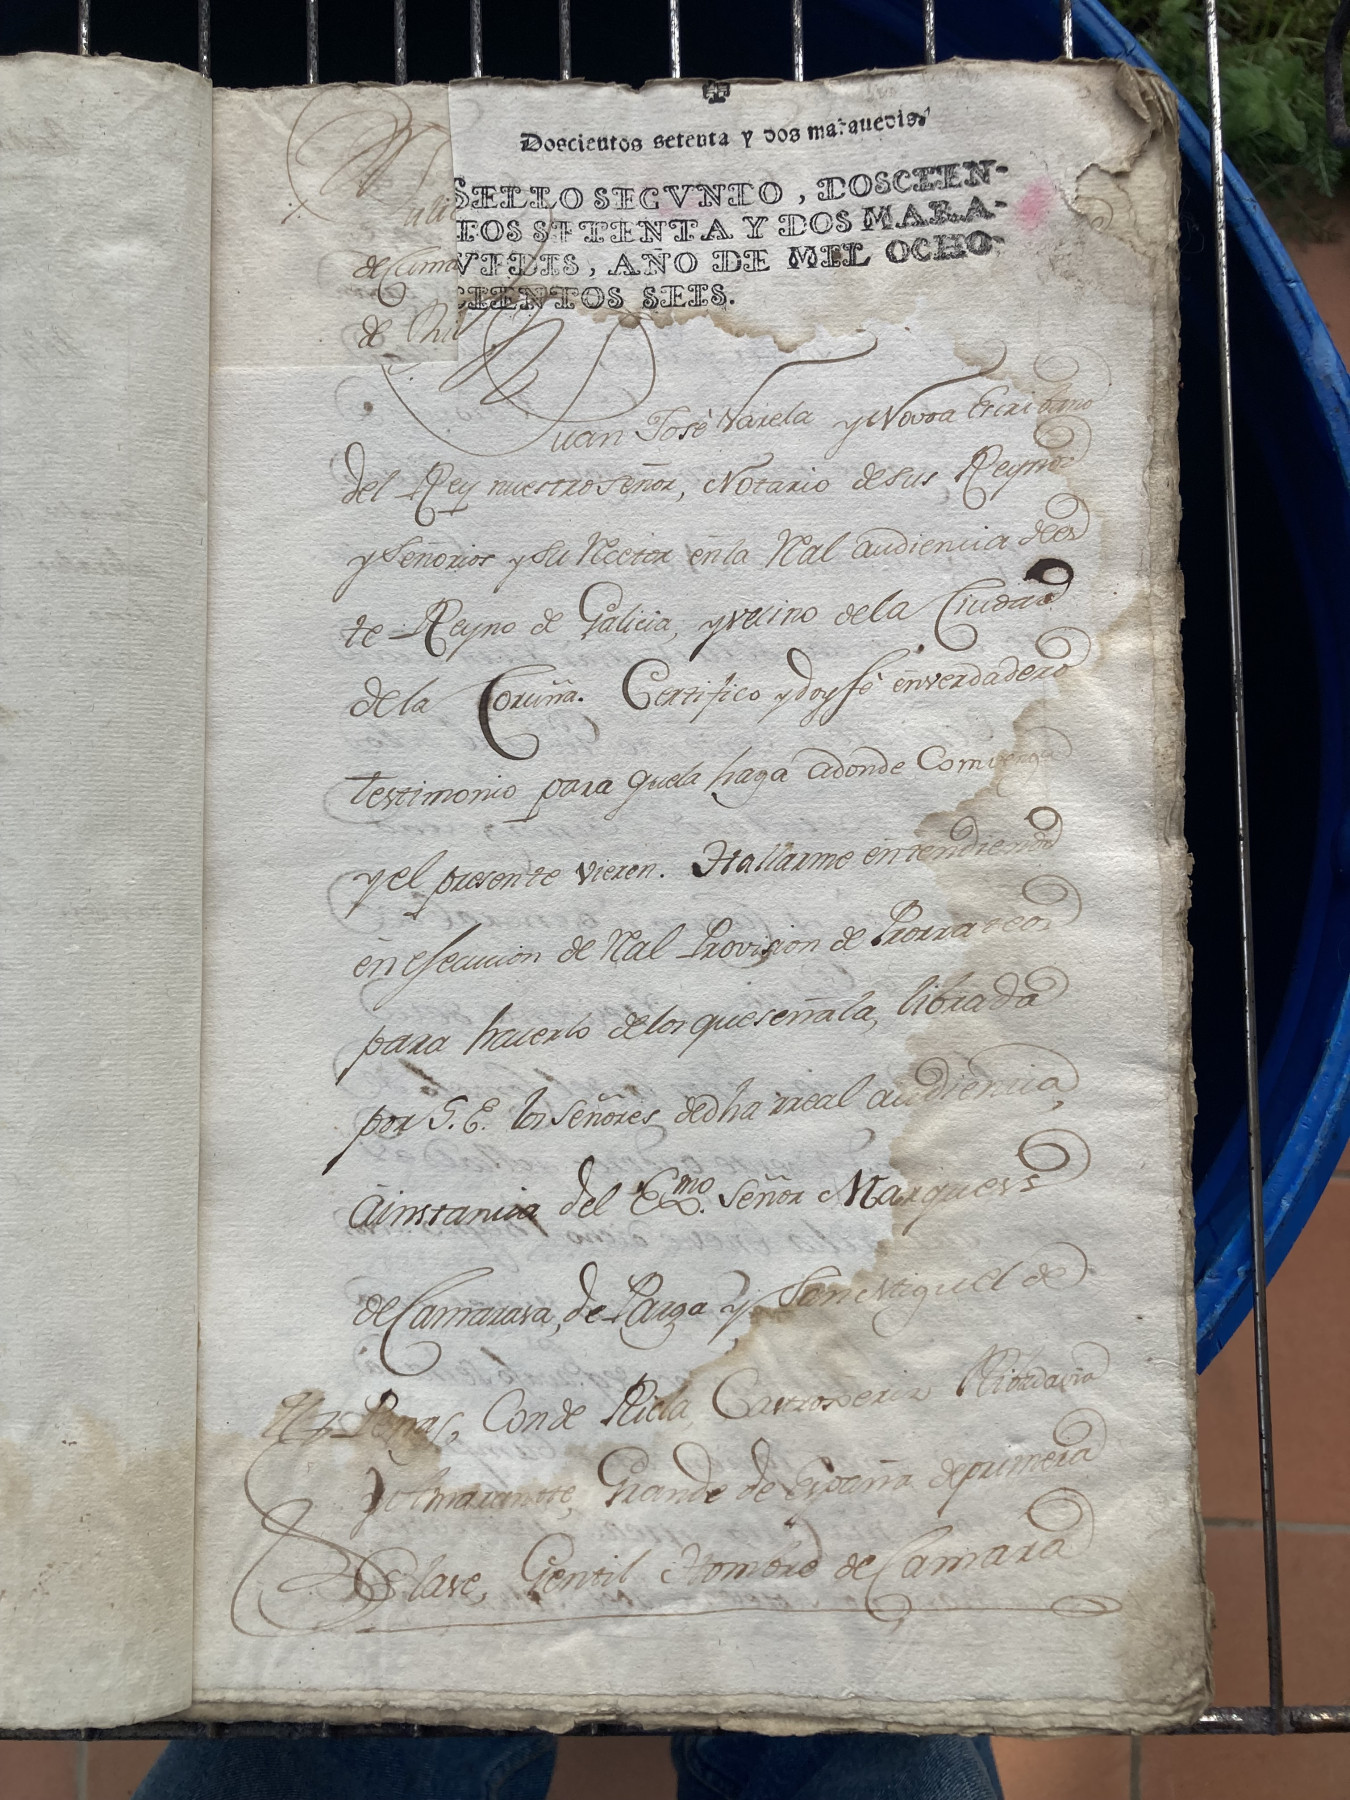 Doscientos setenta y dos marauedis.
SELLO SEGVNDO, DOSCIEN-
TOS SETENTA Y DOS MARA-
VEDIS, AÑO DE MIL OCHO-
CIENTOS SEIS.
Juan Josè Varela y Novoa Escribano
del Rey nuestro señor, Notario de sus Reynos
y señorios y su Rector en la Ral audiencia de es
te Reyno de Galicia, y vecino de la Ciudad
de la Coruña. Certifico y doy fé en verdadero
testimonio para que la haga adonde Comvenga
y el presente vieren. Hallarme entendiendo
en esecucion de Ral Provision de Prorrateos
para hacerlo de los que señala, librada
por S. E. los señores de dha rreal audiencia,
a instancia del Exmo. Señor Marques
de Camarasa, de Parga y San Miguel de
Penas, Conde Ricla, Castroxeriz Ribadavia
y Amarantte, Grande de España de primera
Clase, Gentil Hombre de Camara